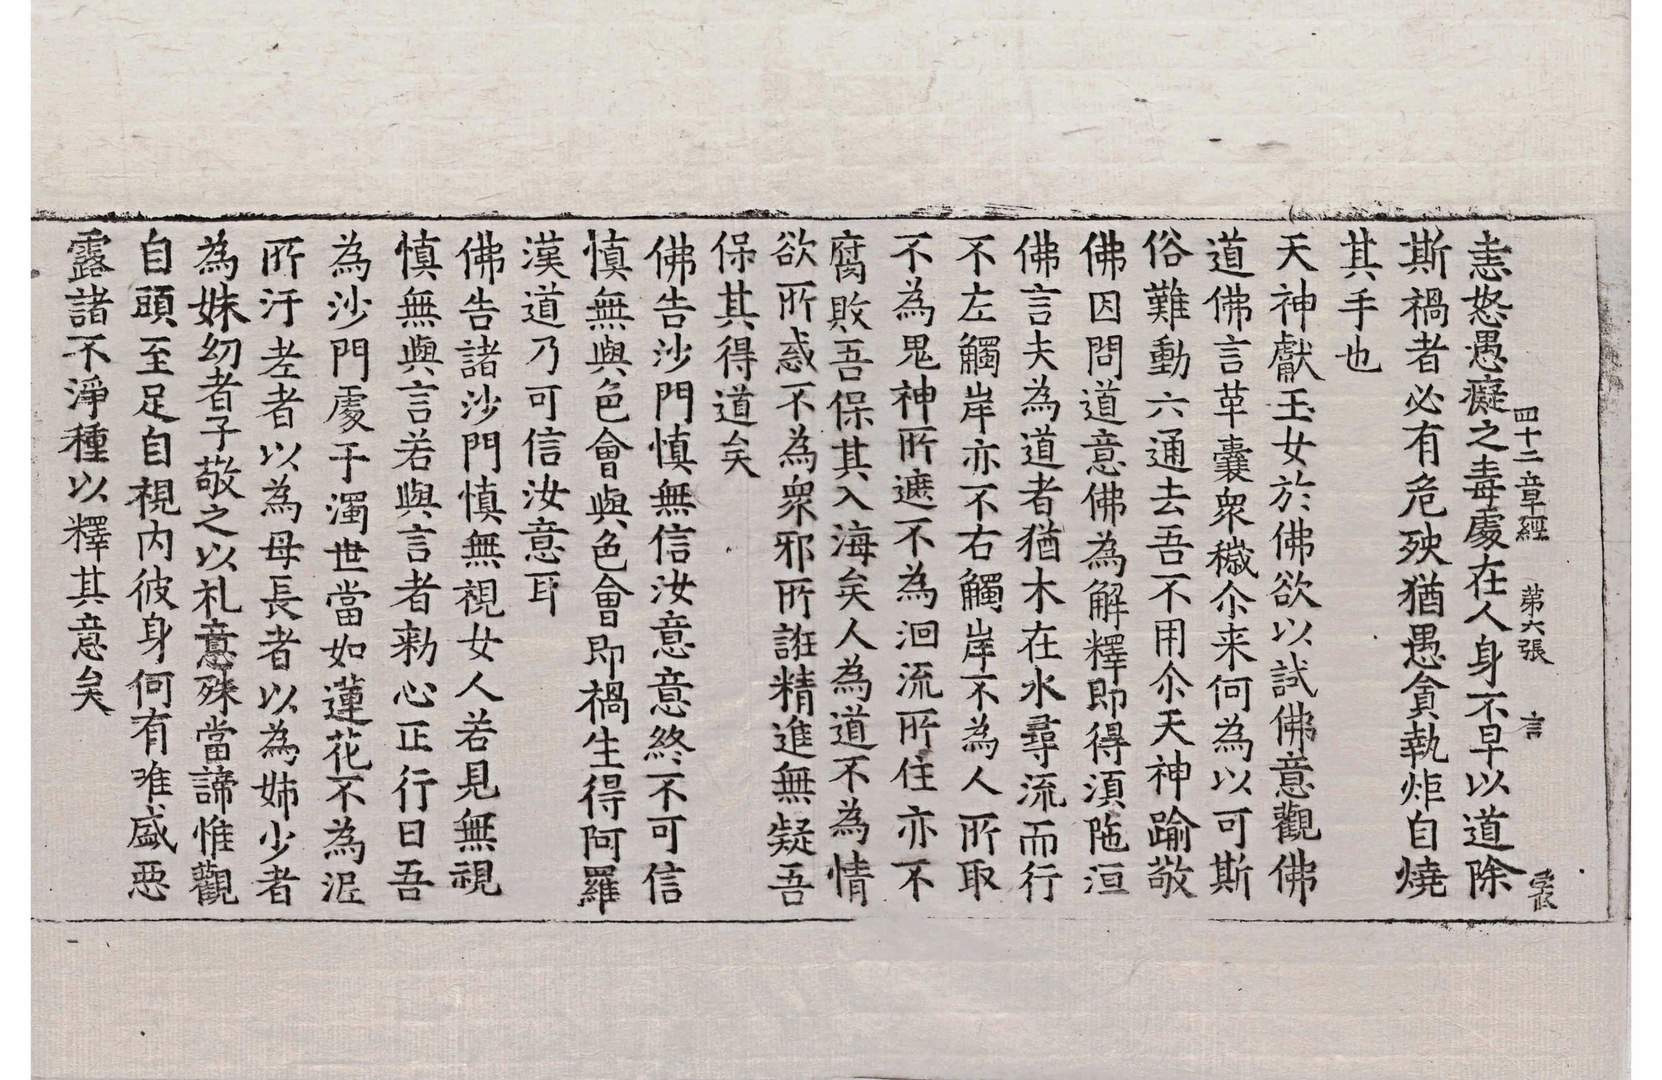 四十二章經　第六張　言
恚怒愚癡之毒處在人身不早以道除
斯禍者必有危殃猶愚貪執炬自燒
其手也
天神獻玉女於佛欲以試佛意觀佛
道佛言革囊衆穢尒来何為以可斯
俗難動六通去吾不用尒天神踰敬
佛因問道意佛為解釋即得湏陁洹
佛言夫為道者猶木在水尋流而行
不左觸岸亦不右觸岸不為人所取
不為鬼神所遮不為洄流所住亦不
腐敗吾保其入海矣人為道不為情
欲所惑不為衆邪所誑精進無疑吾
保其得道矣
佛告沙門慎無信汝意意終不可信
慎無與色會與色會即禍生得阿羅
漢道乃可信汝意耳
佛告諸沙門慎無視女人若見無視
慎無與言若與言者勑心正行曰吾
為沙門處于濁世當如蓮花不為泥
所汙老者以為母長者以為姊少者
為妹幼者子敬之以礼意殊當諦惟觀
自頭至足自視内彼身何有唯盛惡
露諸不淨種以釋其意矣